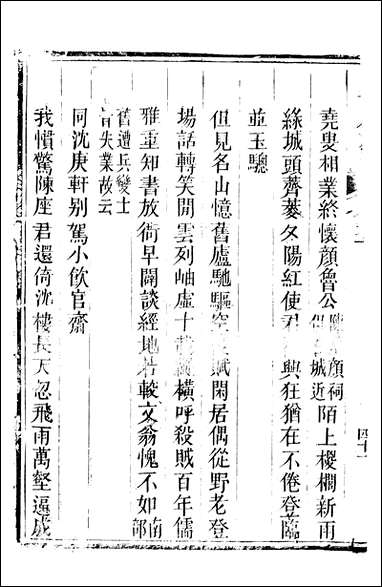 堯叟相業終懷顔魯公顔祠城近陌上櫻桐新雨
綠城頭薺菱冬陽紅使君興狂猶在不倦登臨
並玉驄
但見名山憶舊廬馳驅空賦閑居偶從野老登
場話轉矣閒雲列岫虛十載縱橫呼殺賊百年儒
雅重知書放衙早闢談經地若較文翁愧不如南部
舊遭兵變士皆失業故云
同沈庚軒別駕小飲官齋
我慣驚陳座君還倚沈樓長天忽飛雨萬壑逼成
四十一